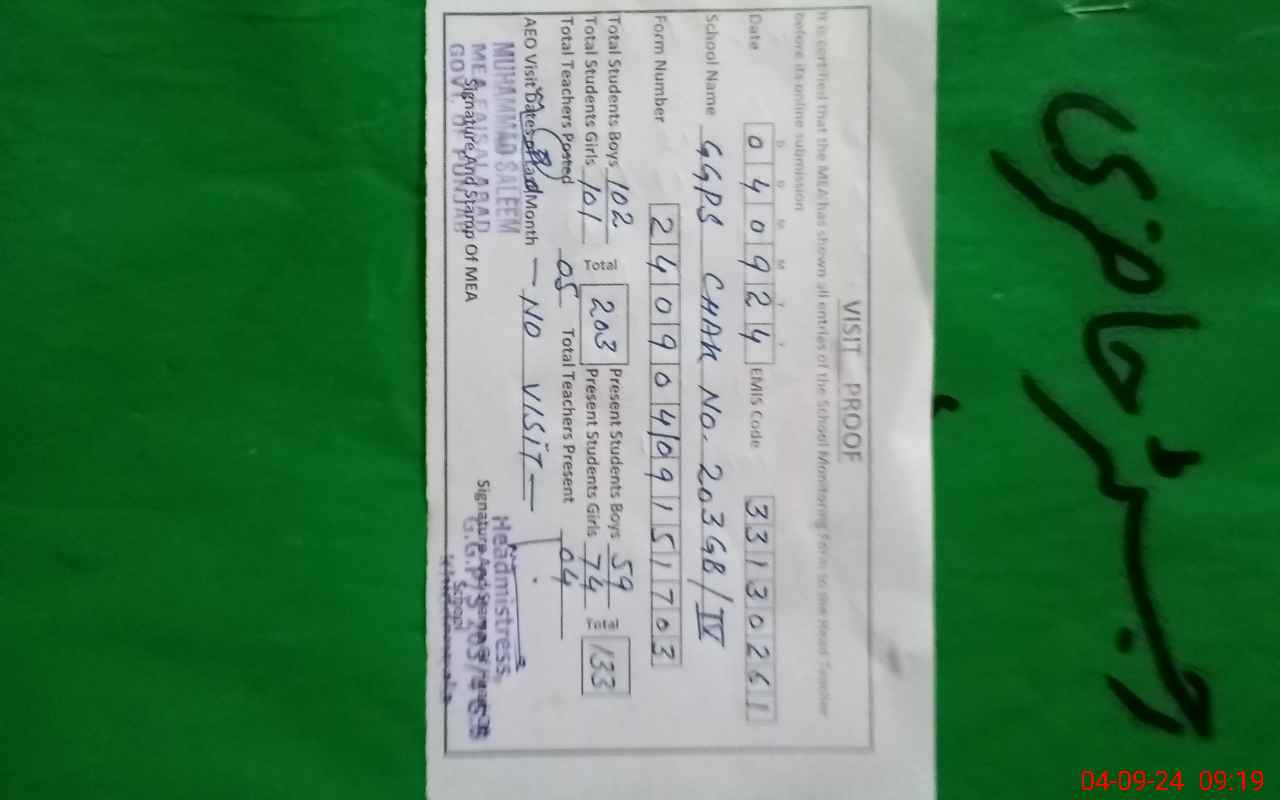 رجسٹر حاضری
VISIT PROOF
It is certified that the MEA has shown all entries of the School Monitoring Form to the Head Teacher
before its online submission
D D M M Y Y
Date 040924 EMIS Code 33130261
School Name GGPS CHAK NO. 203GB/IV
Form Number 24090409151703
Total Students Boys 102 Total 203 Present Students Boys 59 Total 133
Total Students Girls 101 Present Students Girls 74
Total Teachers Posted 05 Total Teachers Present 04
AEO Visit Dates of Last Month — NO VISIT —
MUHAMMAD SALEEM
MEA FAISALABAD
GOVT. OF PUNJAB
Signature And Stamp Of MEA
Headmistress
G.G.P/S 203/
School
04-09-24 09:19